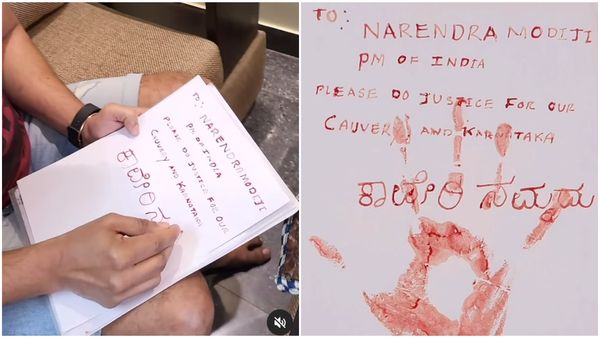 TO: NARENDRA MODIJI
PM OF INDIA
PLEASE DO JUSTICE FOR OUR
CAUVERY AND KARNATAKA
ಕಾವೇರಿ ನ
TO: NARENDRA MODIJI
PM OF INDIA
PLEASE DO JUSTICE FOR OUR
CAUVERY AND KARNATAKA
ಕಾವೇರಿ ನಮ್ಮದು